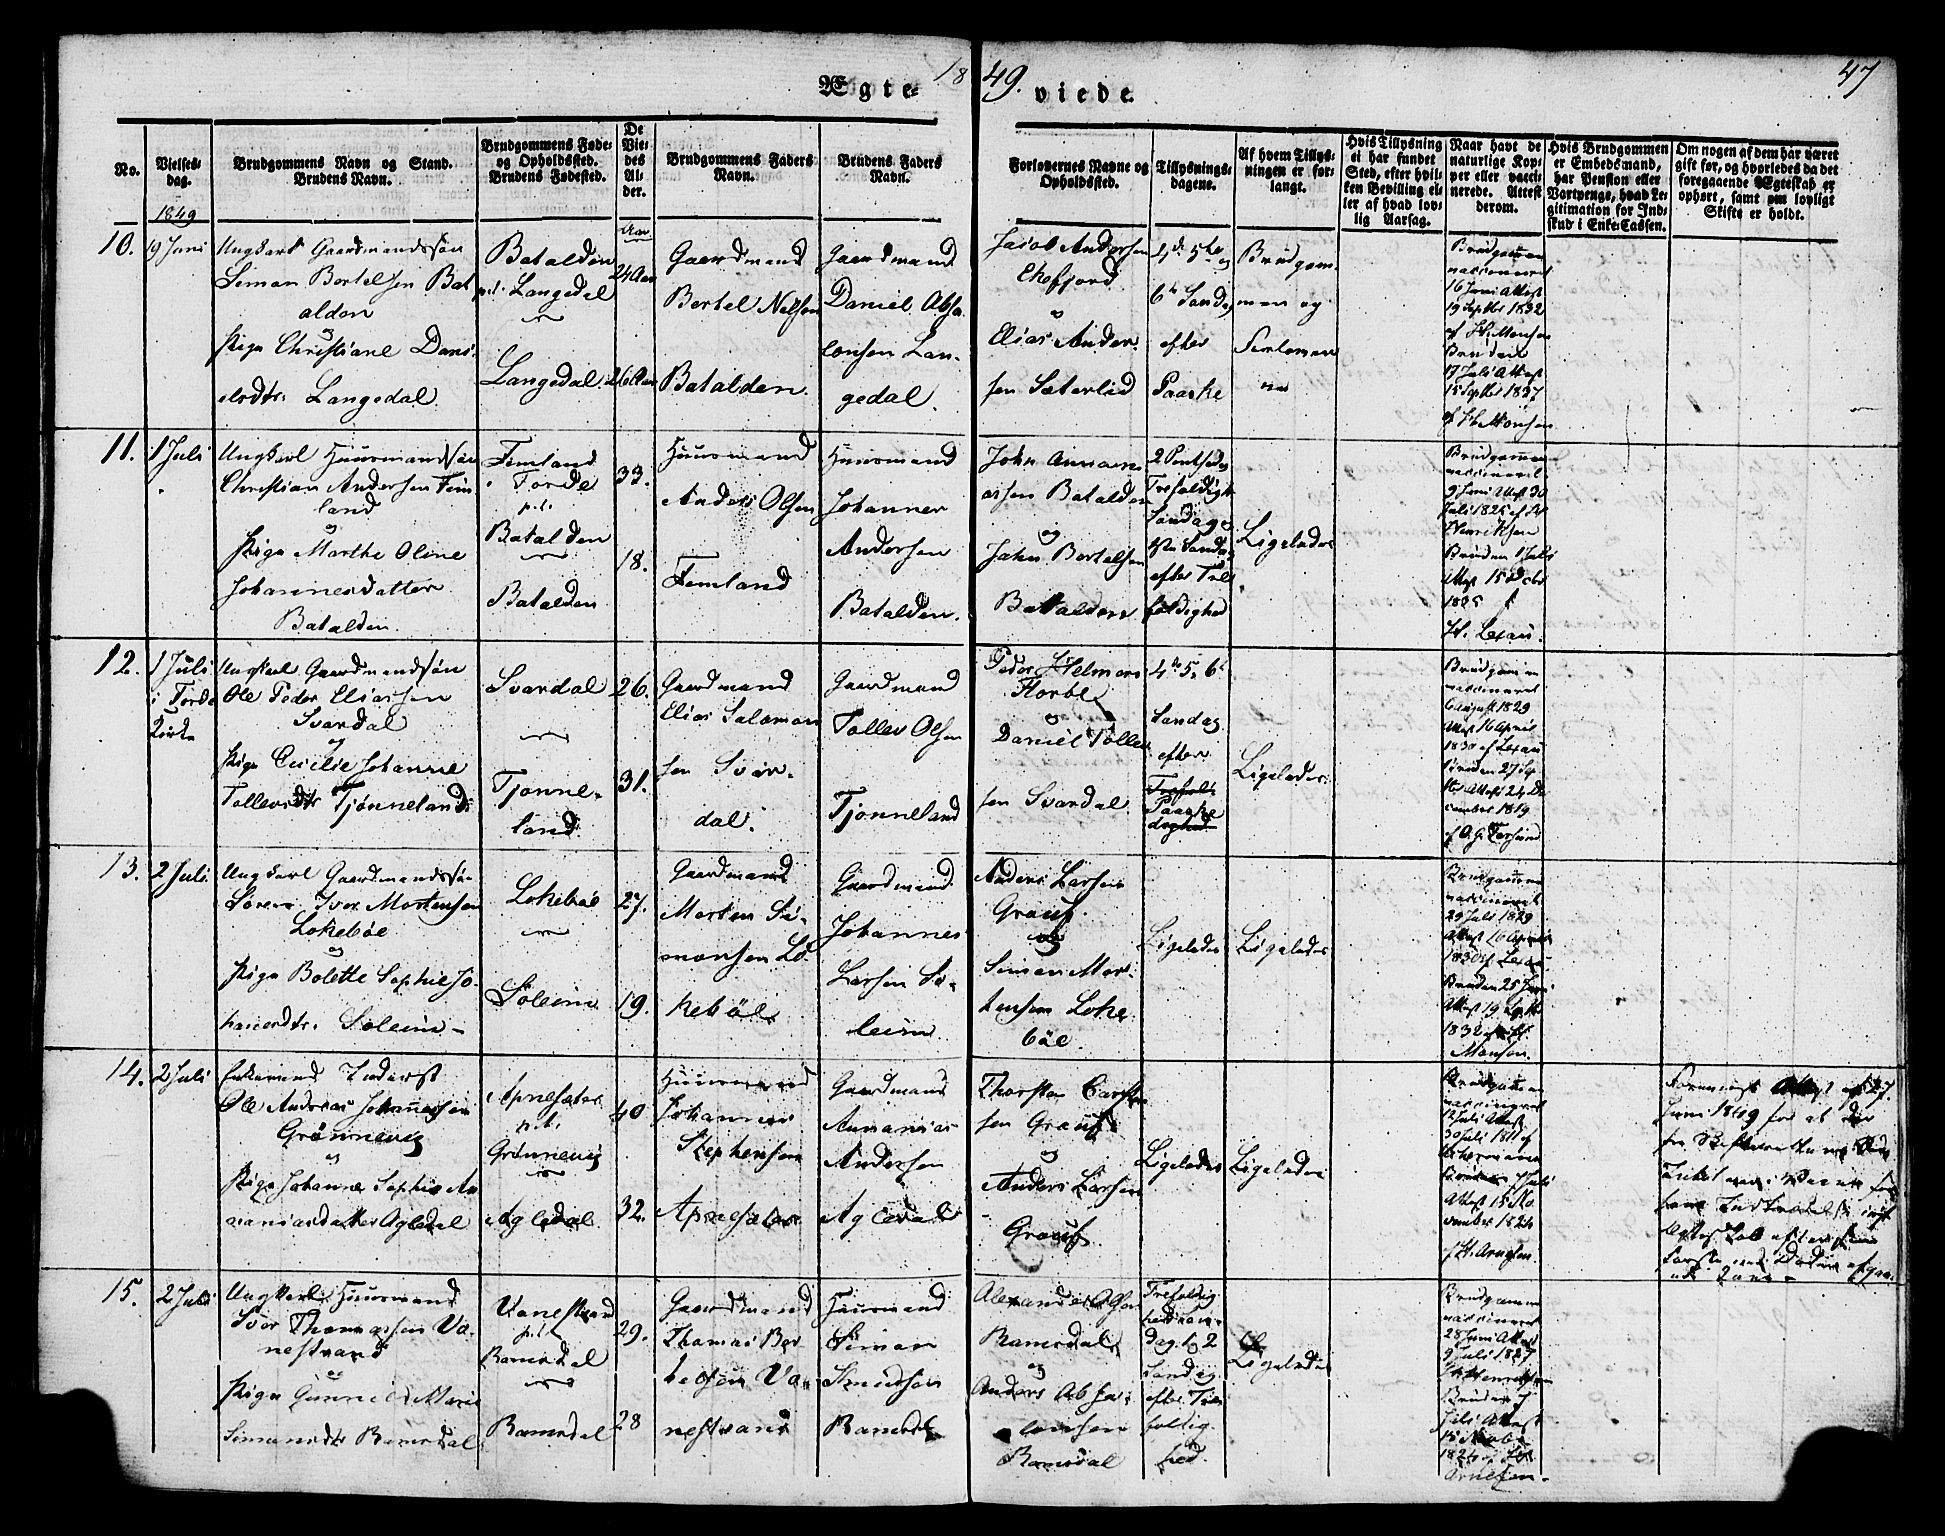 1849.
47
Ægte=
viede.
No.
Vielses-
dag.
Brudgommens Navn og Stand.
Brudens Navn.
Brudgommens Føde-
og Opholdssted.
Brudens Fødested.
De
Vie-
des
Al-
der.
Brudgommens Faders
Navn.
Brudens Faders
Navn.
Forlovernes Navne og
Opholdssted.
Tillysnings-
dagene.
Af hvem Tillys-
ningen er for-
langt.
Hvis Tillysning
ei har fundet
Sted, efter hvil-
ken Bevilling el-
ler af hvad lov-
lig Aarsag.
Naar havt de
naturlige Kop-
per eller vacci-
nerede. Attest
derom.
Hvis Brudgommen
er Embedsmand,
har Pension eller
Vartpenge, hvad Le-
gitimation for Ind-
skud i Enke-Cassen.
Om nogen af dem har været
gift før, og hvorledes da det
foregaaende Ægteskab er
ophørt, samt om lovligt
Skifte er holdt.
1849
10.
19 Juni
Ungkarl Gaardmandssøn
Simon Bertelsen Bat
alden
og
Pige Christiane Dani
elsdtr. Langedal
Batalden
p.t. Langedal
Langedal
Aar
24 Aar
26 Aar
Gaardmand
Bertel Nilsen
Batalden
Gaardmand
Daniel Absa
lonsen Lan-
gedal.
Jacob Andersen
Ekefjord
og
Elias Ander-
sen Sæterlid
4de 5te og
6te Søndag
efter
Paaske
Brudgom-
men og
Forlover
ne
Brudgommen
vaccineret
16 Juni Attest
19 Septbr 1832
af H. Monsen
Bruden
17 Juli Attest
15 Septbr 1827
af H. Monsen
11.
1 Juli
Ungkarl Huusmandssøn
Christian Andersen Fem
land
og
Pige Marthe Oline
Johannesdatter
Batalden.
Femland
i Førde
p.t.
Batalden
Batalden
33.
18.
Huusmand
Anders Olsen
Femland
Huusmand
Johannes
Andersen
Batalden.
John
Batalden
og
John Bertelsen
Batalden
Trefoldigh
Søndag
efter Tre
foldighed
Ligeledes
Brudgommen
vaccineret
9 Juni Attest 30
Juli 1825 af
Henriksen
Bruden 1 Juli
Attest 15 Octbr
H. Lexau.
12.
1 Juli
i Førde
Kirke
Ungkarl Gaardmandssøn
Ole Peder Eliassen
Svardal
og
Pige Cecilie Johanne
Tollevsdtr Tjønneland
Svardal
Tjønne-
land
26.
31.
Gaardmand
Elias Salamon
sen Svar-
dal.
Gaardmand
Tollev Olsen
Tjønneland
Peder
og
Daniel Tollev
sen Svardal
4de 5te 6te
Søndag
efter
Paaske
Ligeledes
Brudgommen
vaccineret
6 August 1829
Attest 16 April
1830 af Lexau
Bruden 27
Attest 24 De
cember 1819
13.
2 Juli
Ungkarl Gaardmandssøn
Søren Iver Mortensen
Lokebøe
og
Pige Bolette Sophie Jo
hannesdtr. Soleim
Lokebøe
Soleim
27.
19.
Gaardmand
Morten Si-
monsen Lo
kebøe
Gaardmand
Johannes
Larsen So-
leim
Anders Larsen
Grouf
og
Simon Mor-
tensen Loke
bøe.
Ligeledes
Ligeledes
Brudgommen
vaccineret
29 Juli 1829
Attest 16 April
1830 af Lexau
Bruden 25 Juni
Attest 19 Septbr
1832 af H.
Monsen.
14.
2 Juli
Enkemand Inderst
Ole Andreas Johannessen
Grønnevig
og
Pige Johanne Sophie An
aniasdatter Agledal
Apnesæter
p.t.
Grønnevig
Agledal
40
32.
Huusmand
Johannes
Stephensen
Apnesæter
Gaardmand
Annanias
Andersen
Agledal
Thorsten Carsten
sen Grouf
og
Anders Larsen
Grouf.
Ligeledes
Ligeledes
Brudgommen
vaccineret
12 Juli Attest
30 Juli 1811 af
Bruden 7 Juli
Attest 15 No
vember 1824
af H. Arnesen.
Attest af 27
Juni 1849 for at
15.
2 Juli
Ungkarl Huusmand
Iver Thomassen Va-
nestrand
og
Pige Gunnild Marie
Simonsdtr Ramsdal
Vanestrand
p.t.
Ramsdal
Ramsdal
29.
28
Gaardmand
Thomas
Va-
nestrand
Huusmand
Simon
Knudsen
Ramsdal
Alexander Olsen
Ramsdal
og
Anders Absa-
lonsen
Ramsdal
Trefoldig
heds Søn-
dag, 1, 2
Søndag
efter Tre
foldig
hed.
Ligeledes
Brudgommen
vaccineret
28 Juni Attest
9 Juli 1827
Henriksen
Bruden
Juli Attest
15 Novbr
1824
Arnesen.